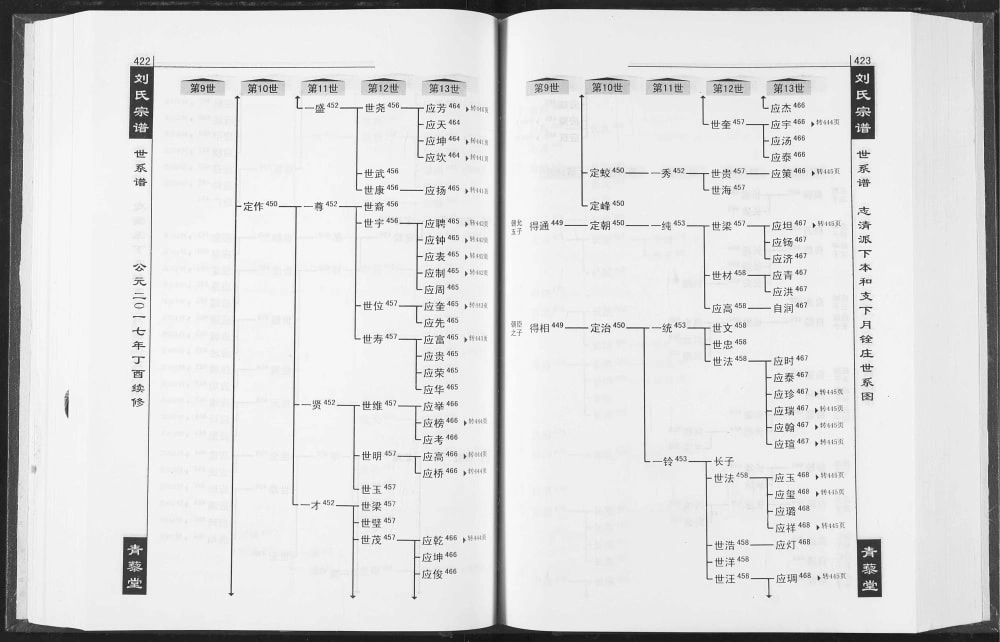 422
刘氏宗谱
世系谱
公元二〇一七年丁酉续修
青藜堂
第9世 第10世 第11世 第12世 第13世
一盛452 世尧456 应芳464
应天464
应坤464 转441页
应坎464 转441页
世武456
世康456 应扬465 转441页
定作450 一尊452 世裔456
世宇456 应聘465 转442页
应钟465
应表465
应制465
应周465
世位457 应奎465
应先465
世寿457 应富465 转443页
应贵465
应荣465
应华465
一贤452 世维457 应举466
应榜466 转444页
应考466
世明457 应高466 转444页
应桥466 转444页
世玉457
一才452 世梁457
世璧457
世茂457 应乾466 转444页
应坤466
应俊466
423
刘氏宗谱
世系谱
志清派下本和支下月铨庄世系图
青藜堂
第9世 第10世 第11世 第12世 第13世
应杰466
世奎457 应宇466 转444页
应汤466
应泰466
定蛟450 一秀452 世贵457 应策466 转445页
世海457
定峰450
得通449 定朝450 一纯453 世梁457 应坦467 转445页
应钖467
应济467
世材458 应青467
应洪467
应高458 自润467
朝臣之子 得相449 定治450 一统453 世文458
世忠458
世法458 应时467
应泰467
应珍467 转445页
应瑞467 转445页
应翰467 转445页
应瑄467 转445页
一铃453 长子
世法458 应玉468 转445页
应玺468 转445页
应璐468
应祥468 转445页
世浩458 应灯468
世洋458
世汪458 应琱468 转445页